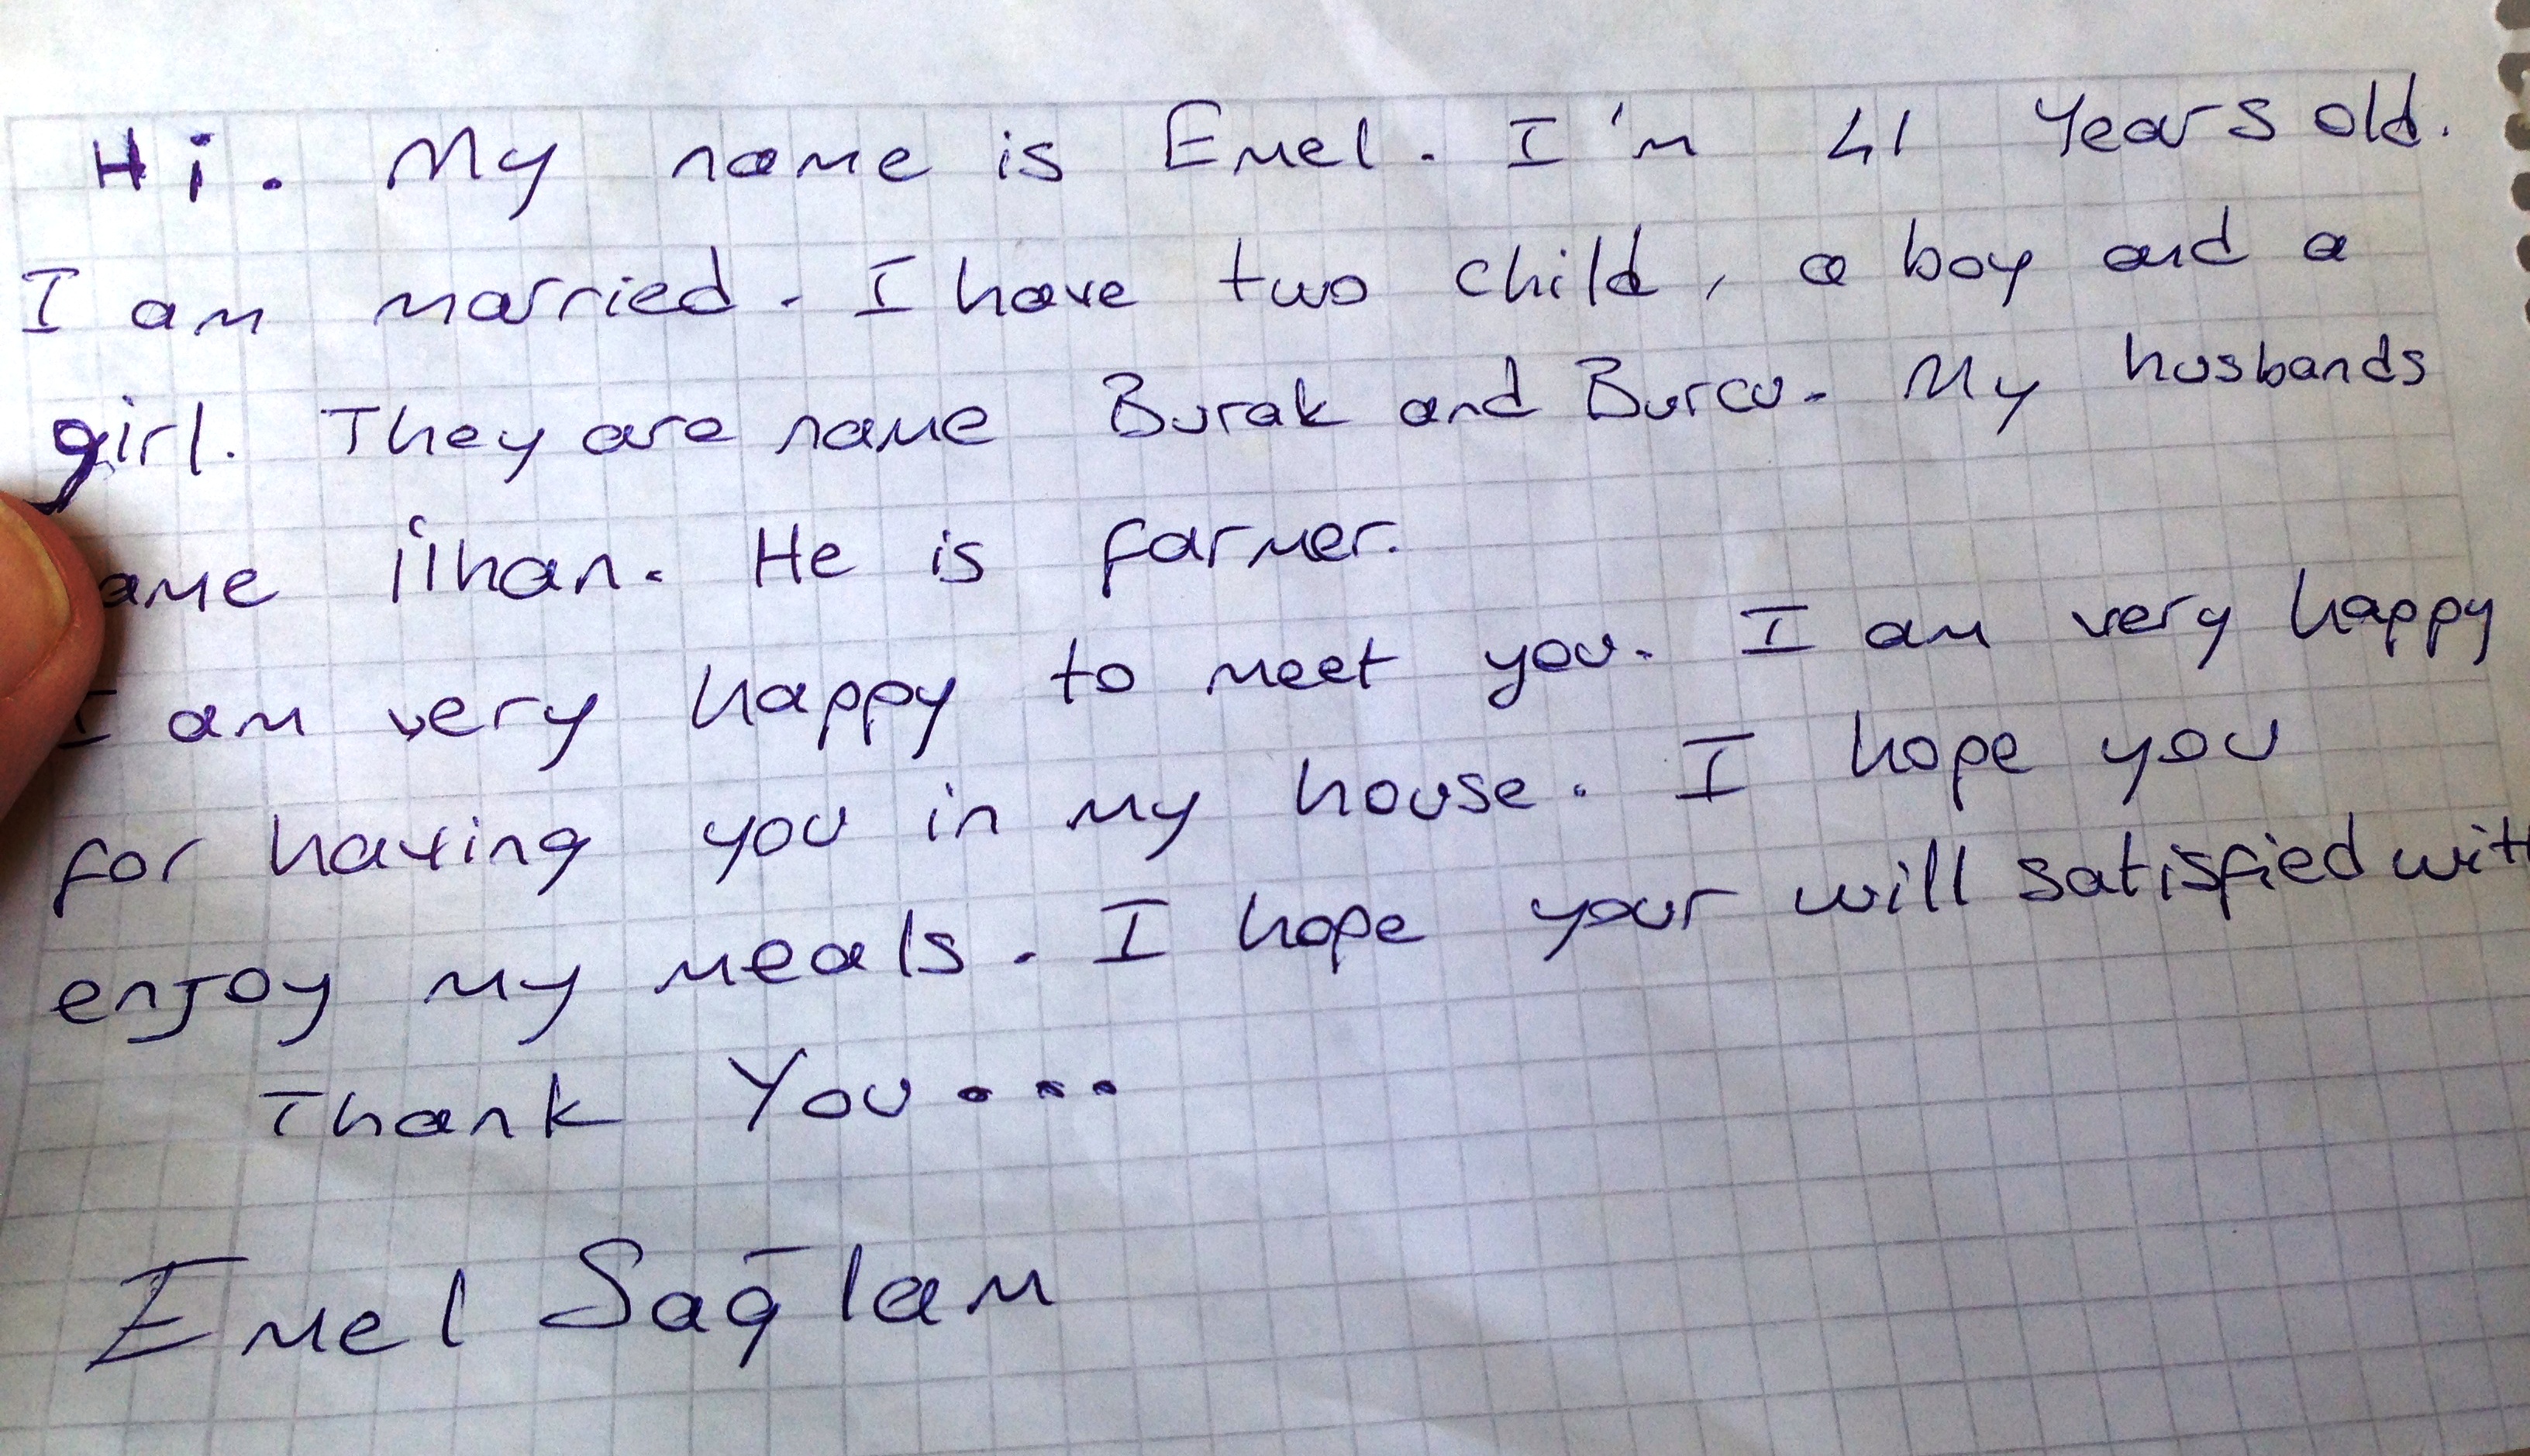 Hi. My name is Emel. I'm 41 Years old.
I am married. I have two child, a boy and a
girl. They are name Burak and Burcu. My husbands
ame ilhan. He is farmer.
I am very happy to meet you. I am very happy
for having you in my house. I hope you
enjoy my meals. I hope your will satisfied with
Thank You....
Emel Sağlam